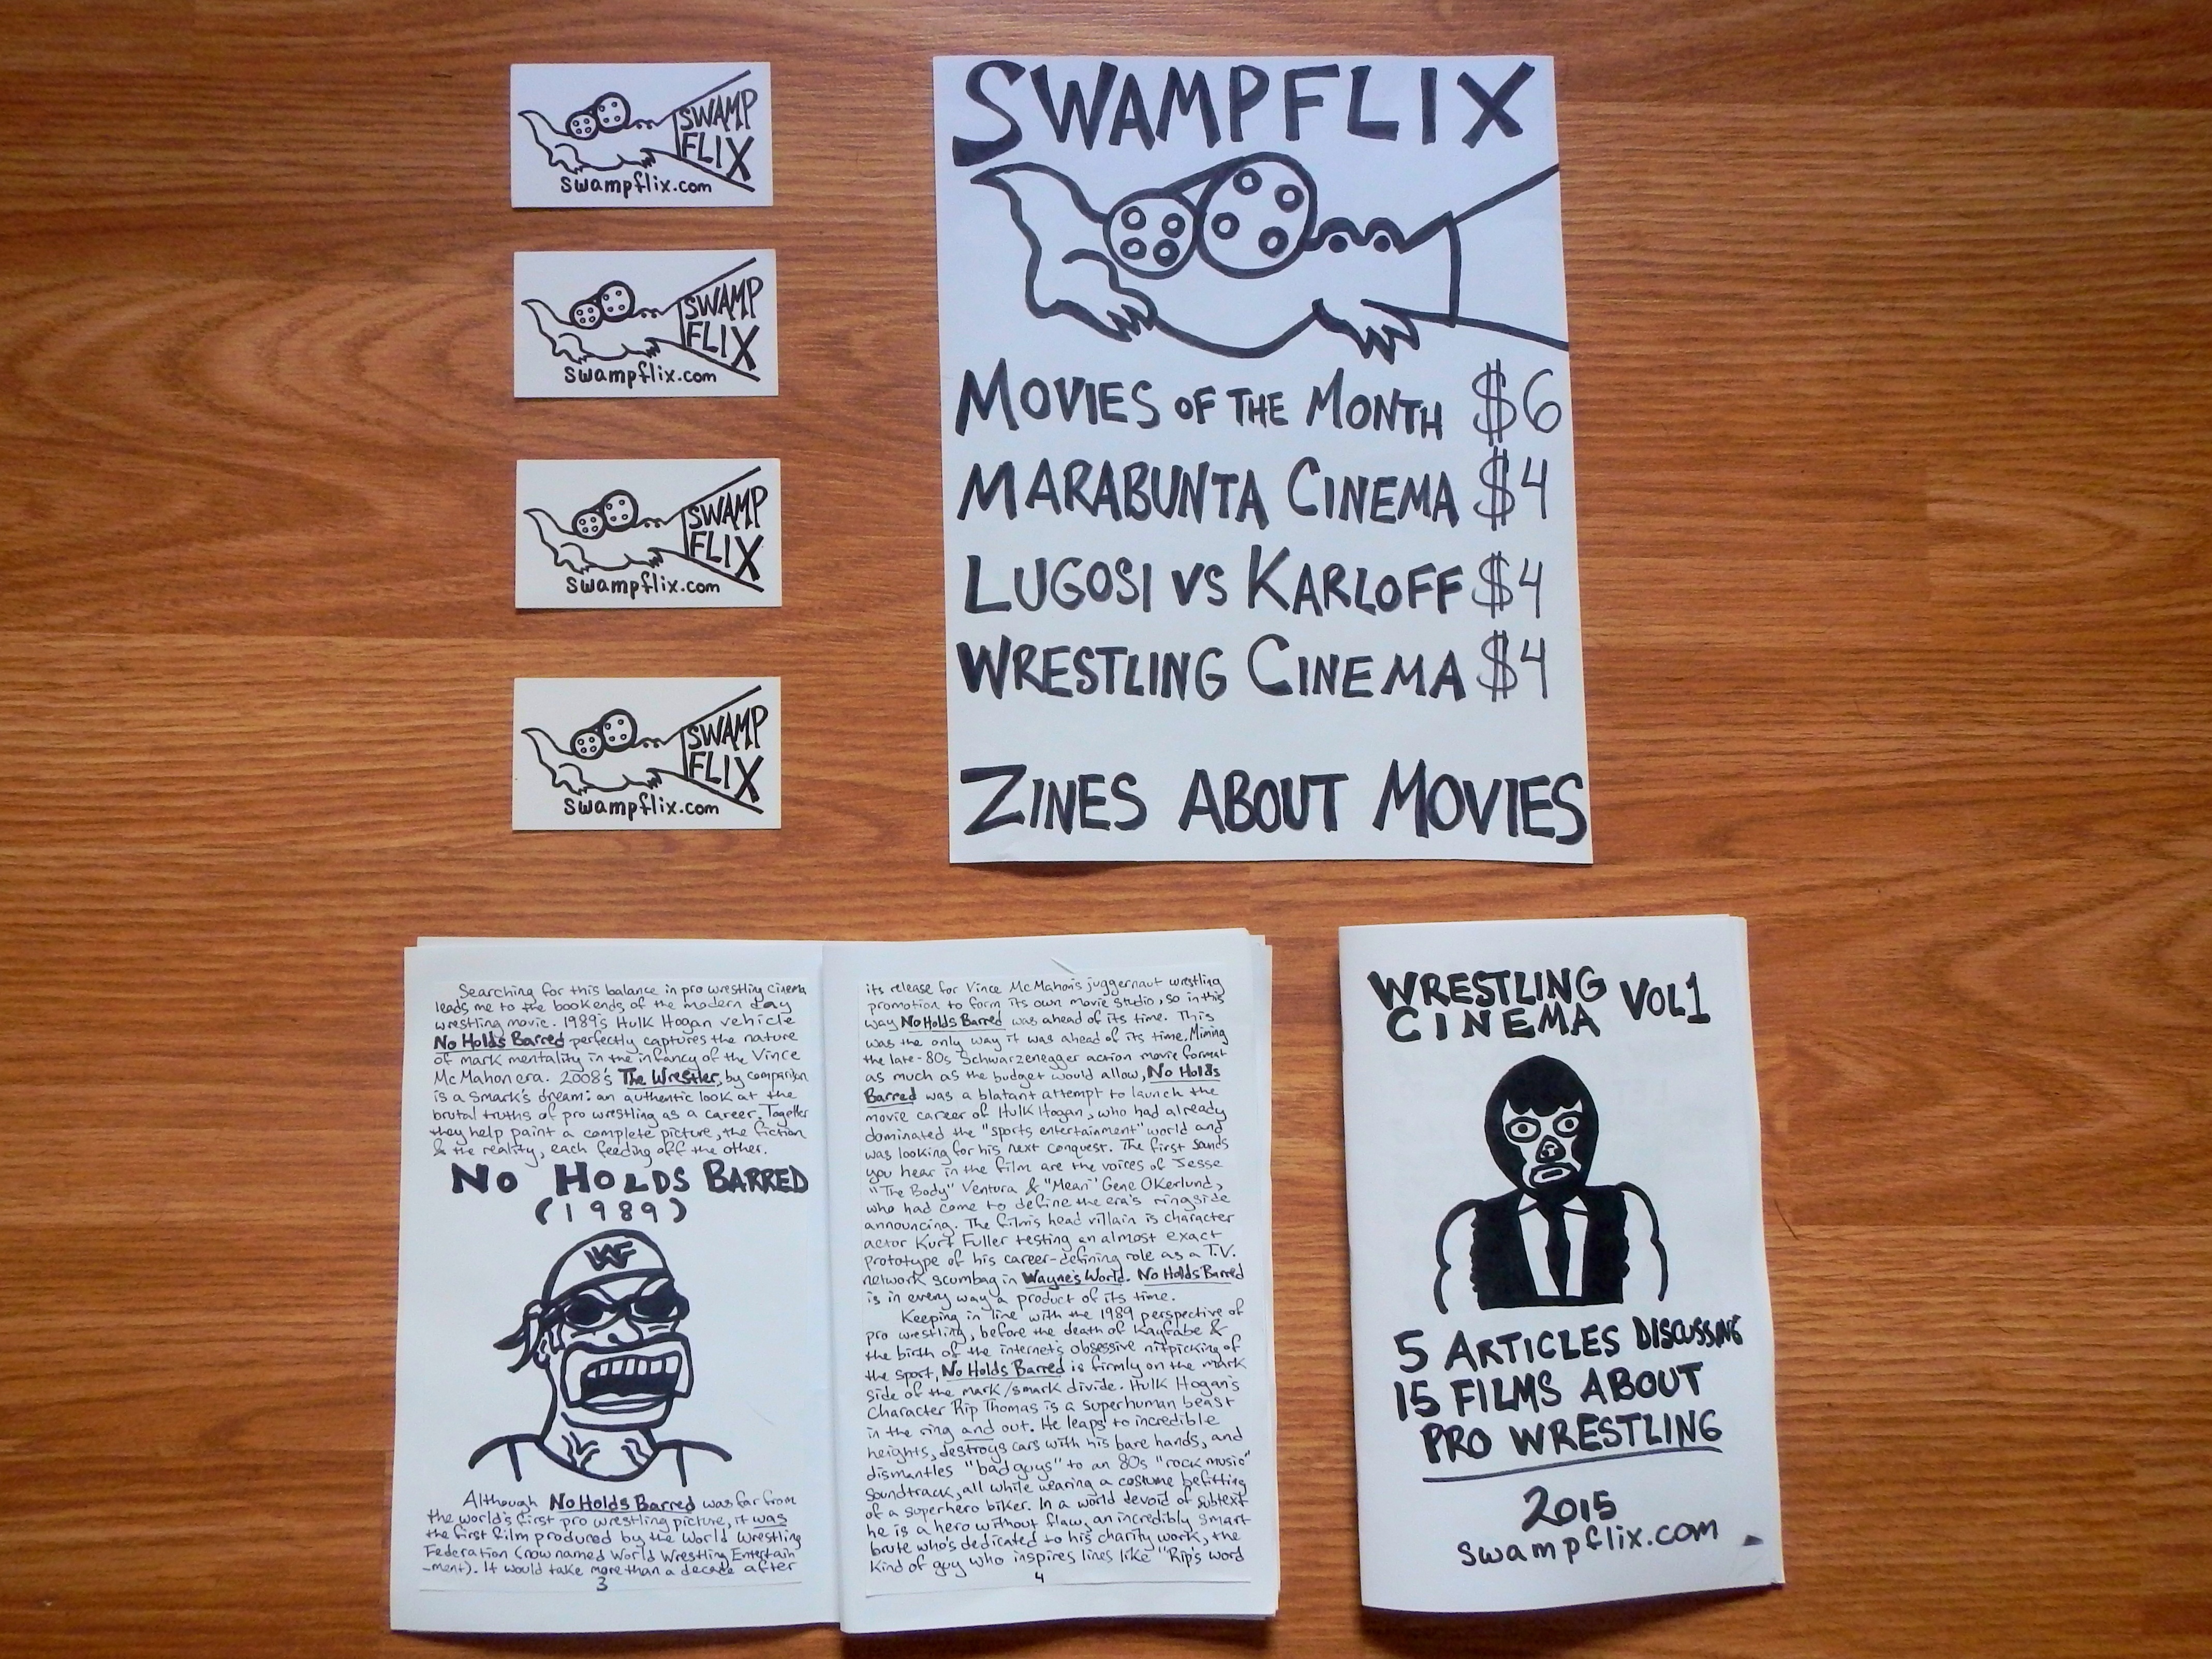 SWAMP
FLIX
swampflix.com
SWAMP
FLIX
swampflix.com
SWAMP
FLIX
swampflix.com
SWAMP
FLIX
swampflix.com
SWAMPFLIX
MOVIES OF THE MONTH $6
MARABUNTA CINEMA $4
LUGOSI VS KARLOFF $4
WRESTLING CINEMA $4
ZINES ABOUT MOVIES
Searching for this balance in pro wrestling cinema
leads me to the bookends of the modern day
wrestling movie. 1989's Hulk Hogan vehicle
No Holds Barred perfectly captures the nature
of mark mentality in the infancy of the Vince
McMahon era. 2008's The Wrestler, by comparison
is a smark's dream: an authentic look at the
brutal truths of pro wrestling as a career. Together
they help paint a complete picture, the fiction
& the reality, each feeding off the other.
NO HOLDS BARRED
(1989)
WF
Although No Holds Barred was far from
the world's first pro wrestling picture, it was
the first film produced by the World Wrestling
Federation (now named World Wrestling Entertain
-ment). It would take more than a decade after
3
its release for Vince McMahon's juggernaut wrestling
promotion to form its own movie studio, so in this
way No Holds Barred was ahead of its time. This
was the only way it was ahead of its time. Miming
the late-80s Schwarzenegger action movie format
as much as the budget would allow, No Holds
Barred was a blatant attempt to launch the
movie career of Hulk Hogan, who had already
dominated the "sports entertainment" world and
was looking for his next conquest. The first sounds
you hear in the film are the voices of Jesse
"The Body" Ventura & "Mean" Gene Okerlund,
who had come to define the era's ringside
announcing. The film's head villain is character
actor Kurt Fuller testing an almost exact
prototype of his career-defining role as a T.V.
network scumbag in Wayne's World. No Holds Barred
is in every way a product of its time.
Keeping in line with the 1989 perspective of
pro wrestling, before the death of Kayfabe &
the birth of the internet's obsessive nitpicking of
the sport, No Holds Barred is firmly on the mark
side of the mark/smark divide. Hulk Hogan's
character Rip Thomas is a superhuman beast
in the ring and out. He leaps to incredible
heights, destroys cars with his bare hands, and
dismantles "bad guys" to an 80s "rock music"
soundtrack, all while wearing a costume befitting
of a superhero biker. In a world devoid of subtext
he is a hero without flaw, an incredibly smart
brute who's dedicated to his charity work, the
kind of guy who inspires lines like "Rip's word
4
WRESTLING
CINEMA VOL 1
5 ARTICLES DISCUSSING
15 FILMS ABOUT
PRO WRESTLING
2015
swampflix.com